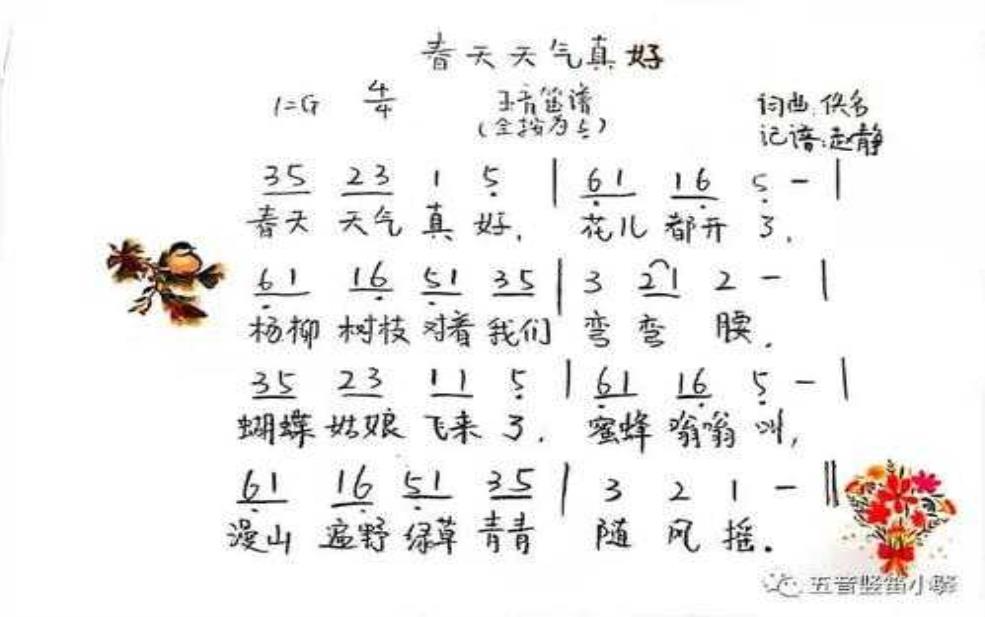 春天天气真好
1=G 4/4 五音笛谱 词曲:佚名
(全按为5) 记谱:赵静
35 23 1 5 | 61 16 5 - |
春天 天气 真 好, 花儿 都开 了,
61 16 51 35 | 3 21 2 - |
杨柳 树枝 对着 我们 弯 弯 腰.
35 23 11 5 | 61 16 5 - |
蝴蝶 姑娘 飞来 了, 蜜蜂 嗡嗡 叫,
61 16 51 35 | 3 2 1 - ‖
漫山 遍野 绿草 青青 随 风 摇.
五音竖笛小驿